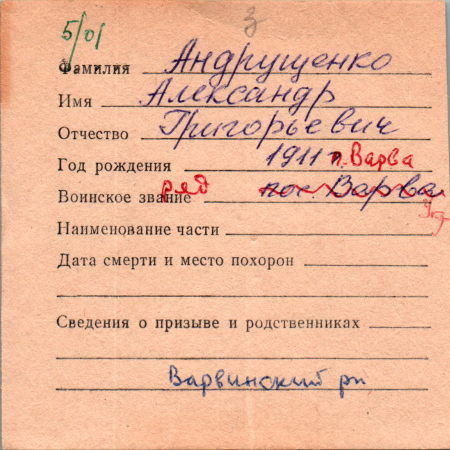 5/01 3
Фамилия Андрущенко
Имя Александр
Отчество Григорьевич
Год рождения 1911 п. Варва
Воинское звание ряд пос. Варва
Наименование части
Дата смерти и место похорон
Сведения о призыве и родственниках
Варвинский рн